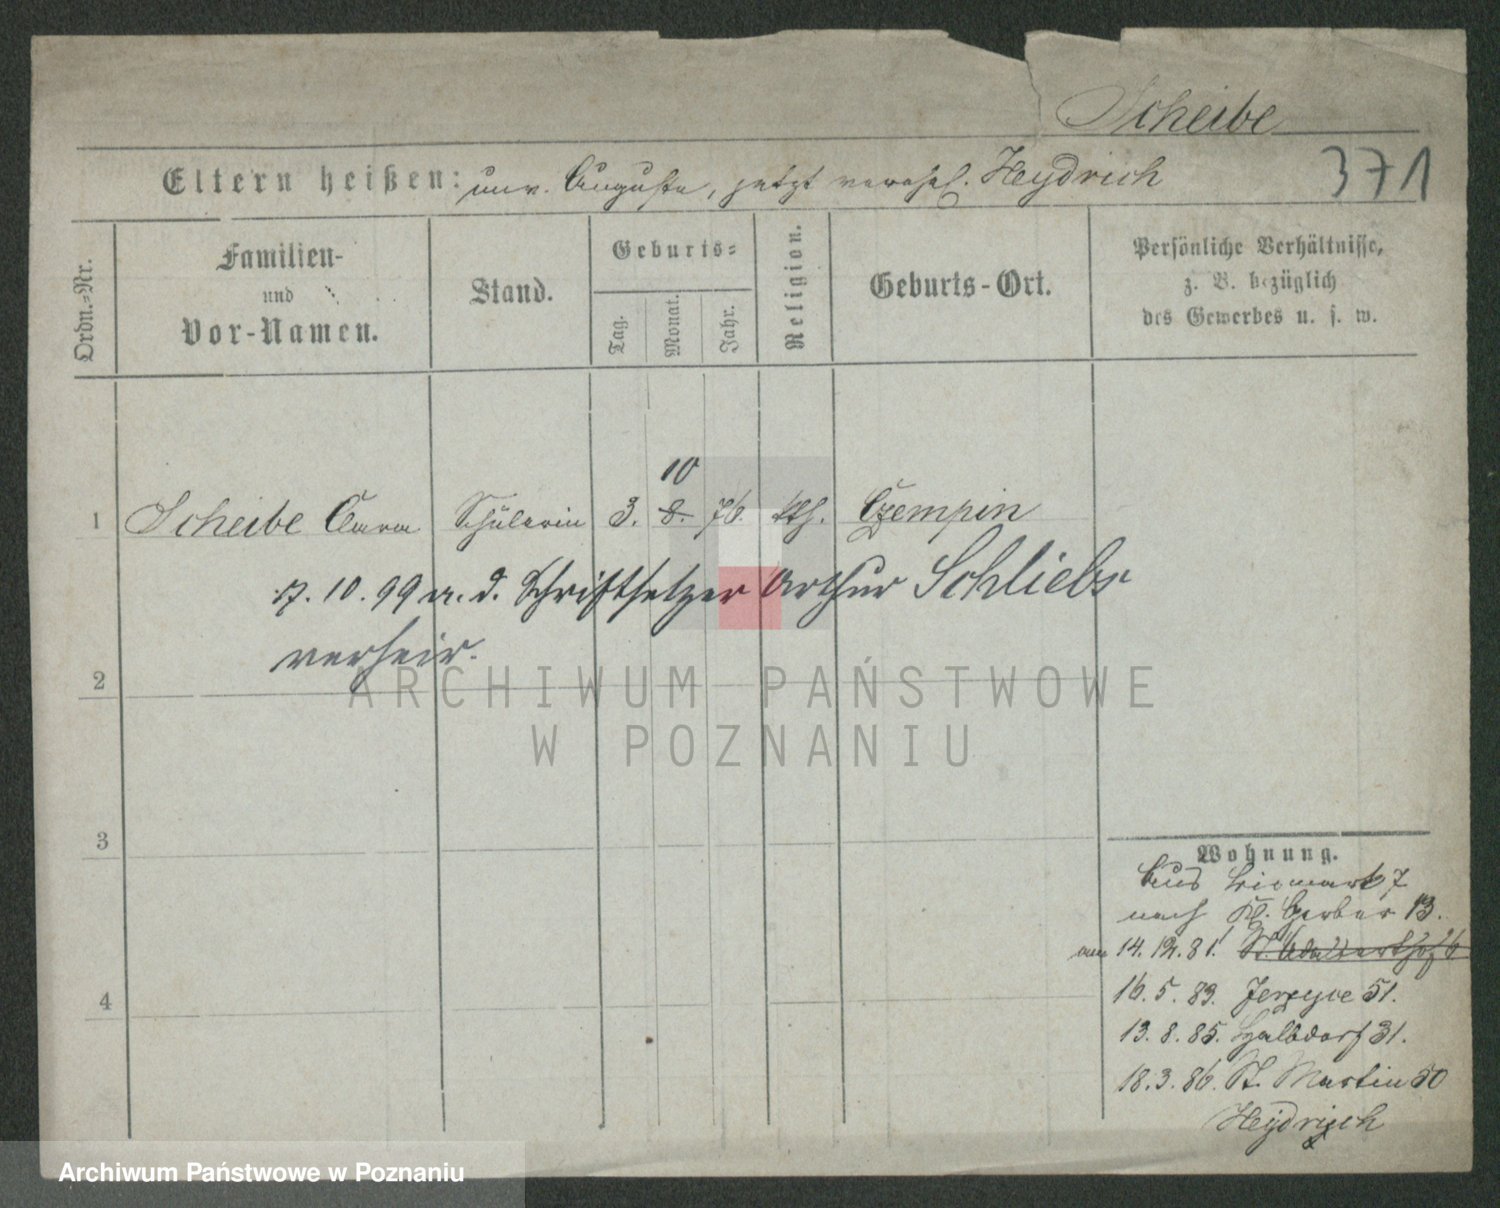 Scheibe
371
Eltern heißen: unv. Auguste, jetzt verehel. Heydrich
Ordn.-Nr.
Familien-
und
Vor-Namen.
Stand.
Geburts-
Tag.
Monat.
Jahr.
Religion.
Geburts-Ort.
Persönliche Verhältnisse,
z. B. bezüglich
des Gewerbes u. s. w.
10
1 Scheibe Clara Schülerin 3. 8. 76. kth. Czempin
7. 10. 99 m. d. Schriftsetzer Arthur Schliebs
verheir.
2
ARCHIWUM PAŃSTWOWE
W POZNANIU
3
4
Wohnung.
Aus 7
nach Kl. Gerber 13.
am 14.12.81. St. Adalbertstr 6
16. 5. 83. Jerzyce 51.
13. 8. 85. Halbdorf 31.
18. 3. 86. St. Martin 50
Heydrich
Archiwum Państwowe w Poznaniu